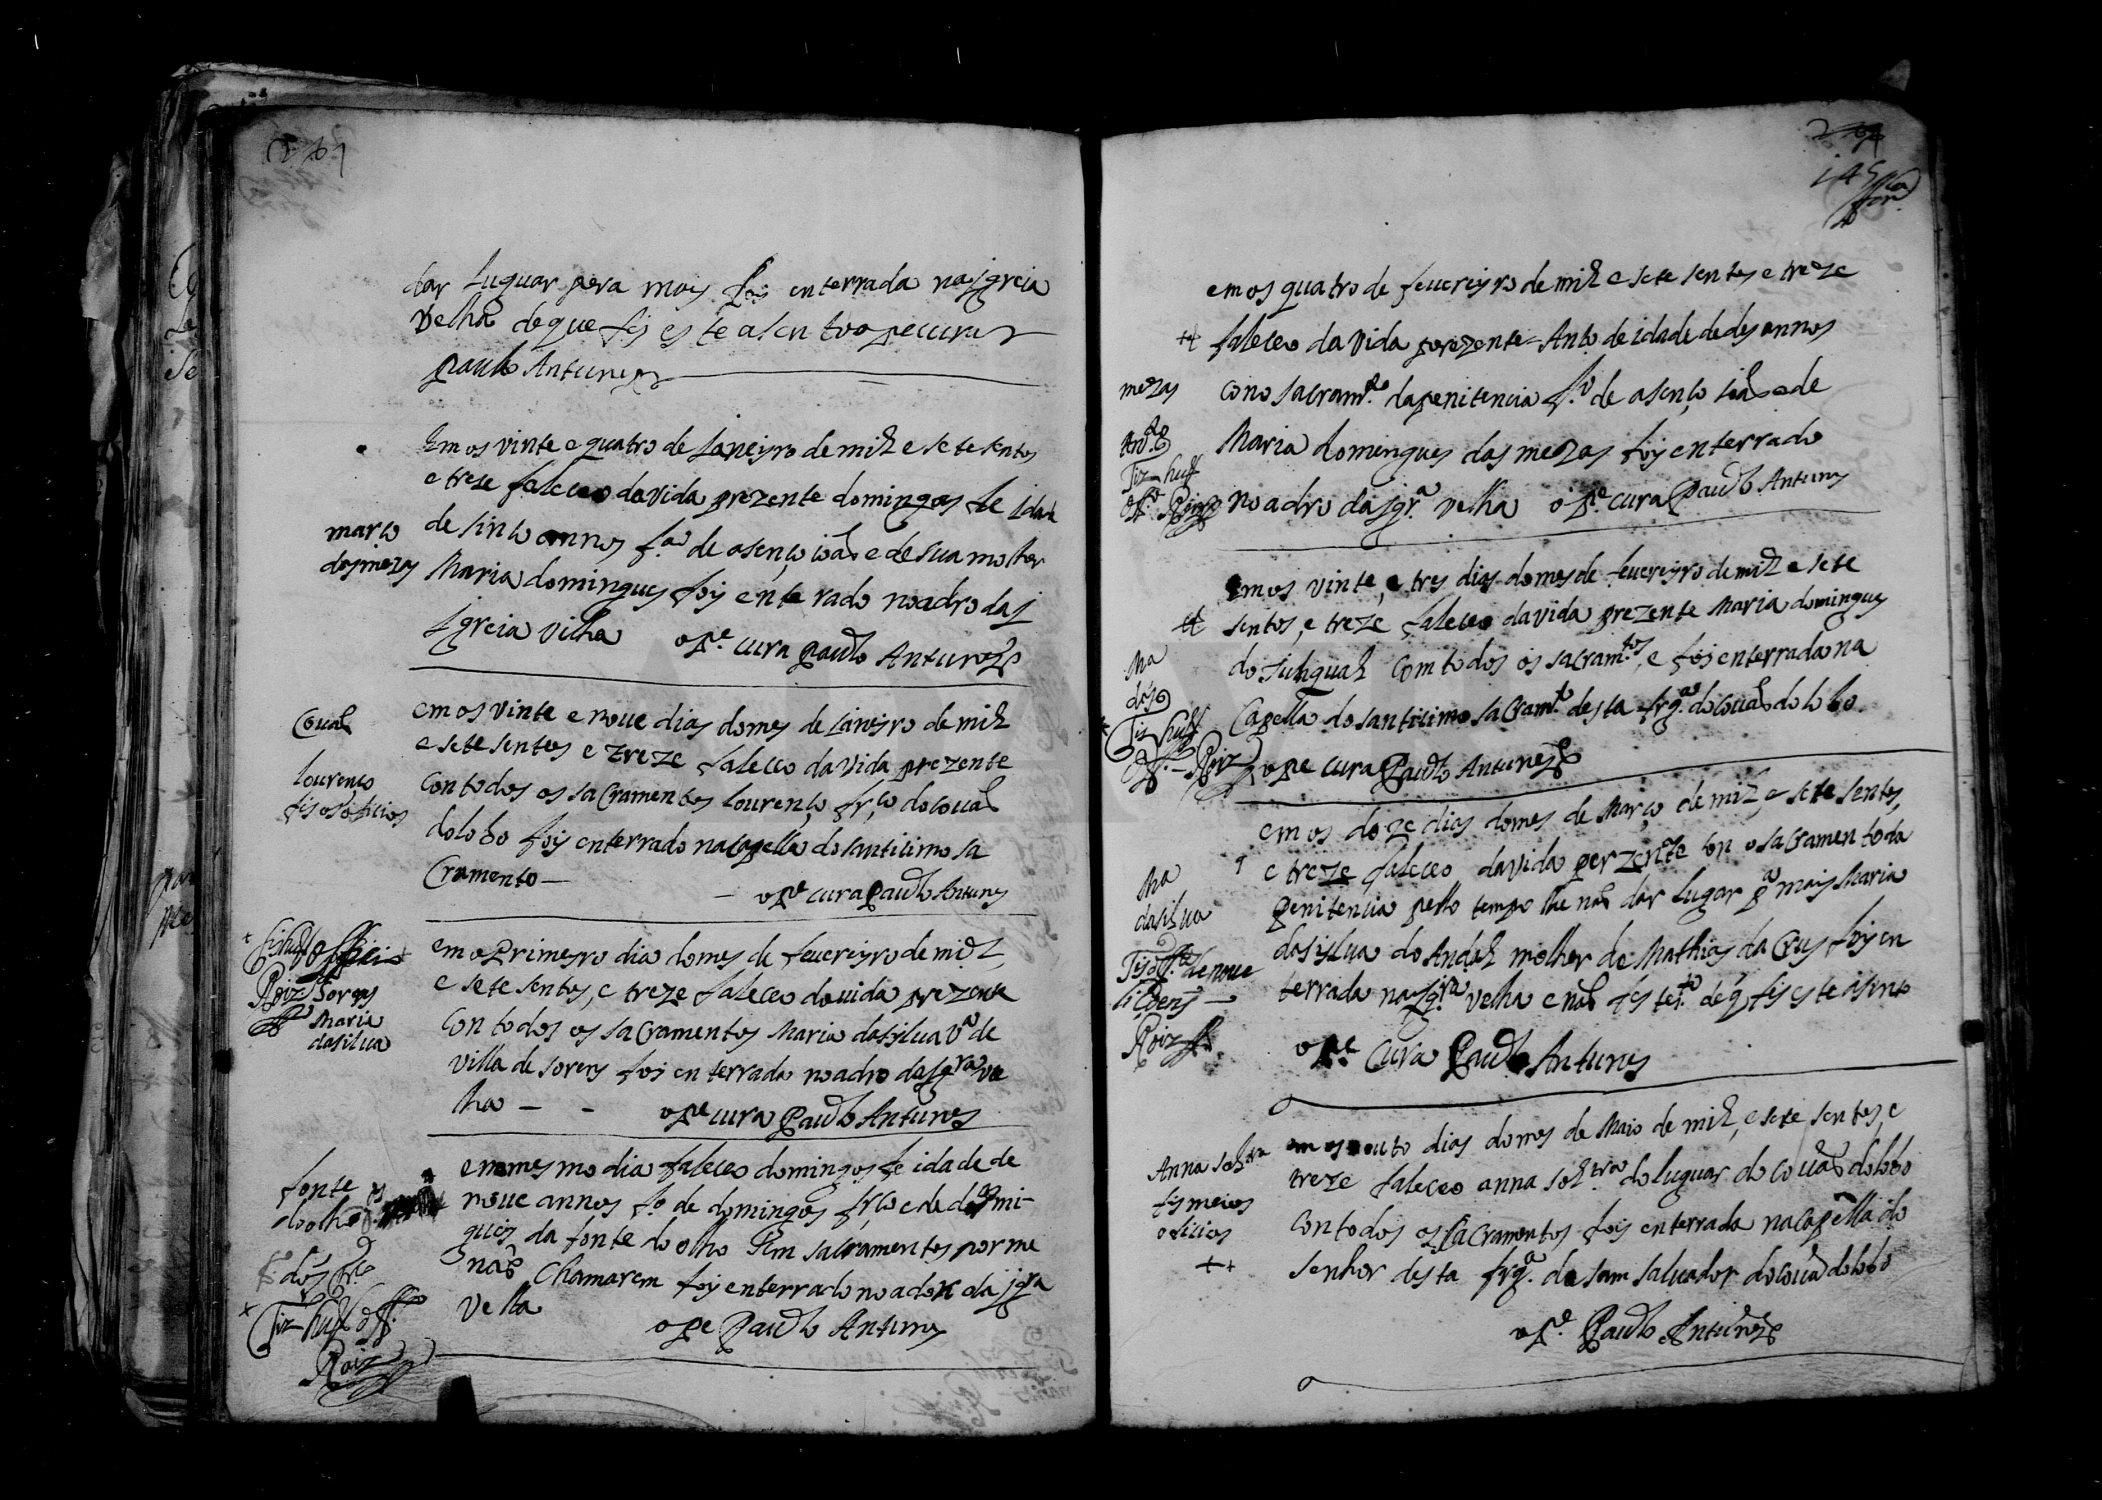 dar luguar pera mais foi enterrada na Jgreia
velha de que fis este asento o pe cura
paulo Antunes
Em os vinte e quatro de Janeiyro de mil e sete sentos
e treze faleceo da vida prezente domingos de idade
de sinco annos f.o de asenço ioão e de sua molher
Maria domingues foy enterado no adro da j
Jgreia vilha o p.e cura paulo Antunes
março
das mezas
em os vinte e noue dias do mes de Janeiro de mil
e sete sentos e treze faleceo da vida prezente
con todos os sacramentos lourenço fr.co do couão
do lobo foy enterrado na capella do santicimo sa
cramento — o p.e cura Paulo Antunes
Couão
lourenço
fis os oficios
em o Primeyro dia do mes de feuereyro de mil
e sete sentos, e treze faleceo da vida prezente
con todos os sacramentos Maria da silua v.a de
villa de soreis foi enterrada no adro da Jgra ve
lha — — o p.e cura Paulo Antunes
Roiz soreis
Maria
da silua
em o mesmo dia faleceo domingos de idade de
noue annos f.o de domingos fr.co e de domi-
gues da fonte do olho sem sacramentos por me
não chamarem foy enterrado no adro da jgra
velha
o pe Paulo Antunes
fonte
do olho
Roiz
145
em os quatro de feuereyro de mil e sete sentos e treze
faleceo da vida prezente Anto de idade de des annos
co no sacram.to da penitencia f.o de asenço ioão e de
Maria domingues das mezas foy enterrado
no adro da jgr.a velha o p.e cura Paulo Antunes
mezas
Ant.o
Em os vinte, e tres dias do mes de feuereyro de mil e sete
sentos, e treze faleceo da vida prezente Maria domingues
do Juhgual com todos os sacram.tos, e foi enterrada na
Capella do santicimo sacram.to desta frg.a do couão do lobo
o pe cura Paulo Antunes
Ma
em os doze dias do mes de Março de mil, e sete sentos,
e treze faleceo da vida perzente con o sacramento da
penitencia pello tempo lhe não dar lugar p.a mais Maria
da sylua do Andal molher de Mathias da Crus foy en
terrada na Jgr.a velha e não fes te.to de q fis este asento
o p.e Cura Paulo Antunes
Ma
da silua
Roiz
em os outo dias do mes de Maio de mil, e sete sentos, e
treze faleceo anna sol.tra do luguar do couão do lobo
con todos os sacramentos foi enterrada na capella do
senhor desta frg.a de sam saluador do couão do lobo
o p.e Paulo Antunes
Anna sol.tra
fis meios
oficios